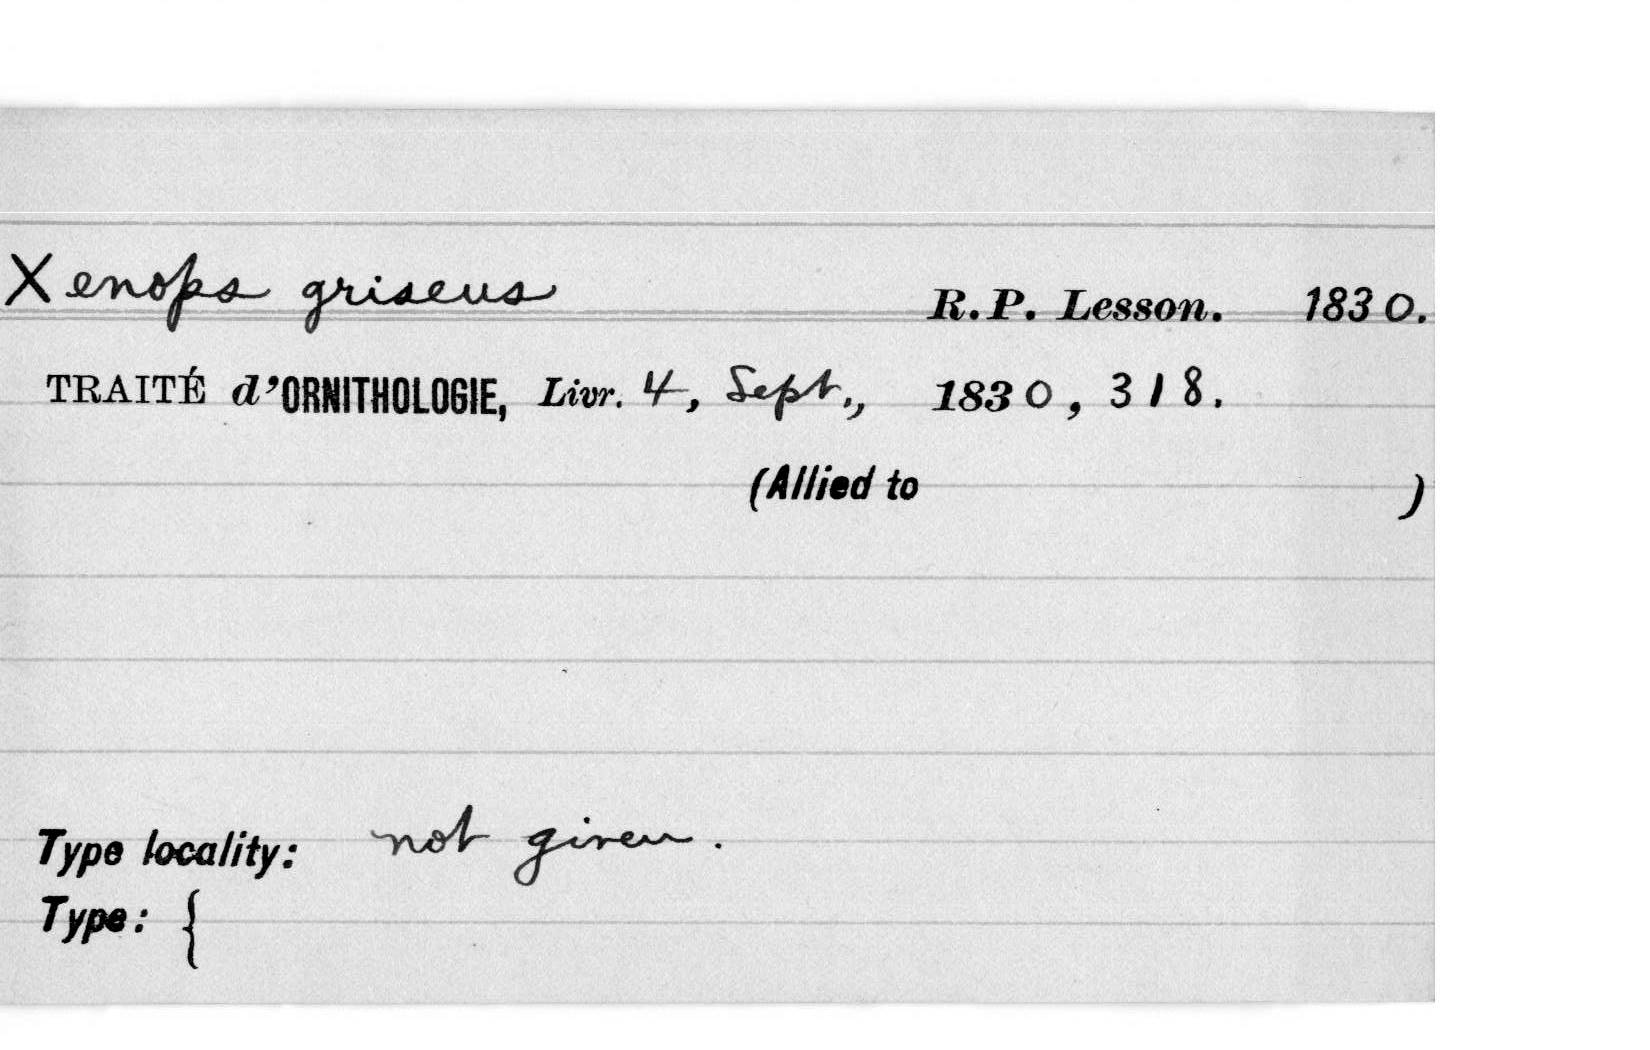 Xenops griseus R.P. Lesson. 1830.
TRAITÉ d'ORNITHOLOGIE, Livr. 4, Sept., 1830, 318.
(Allied to )
Type locality: not given.
Type: {